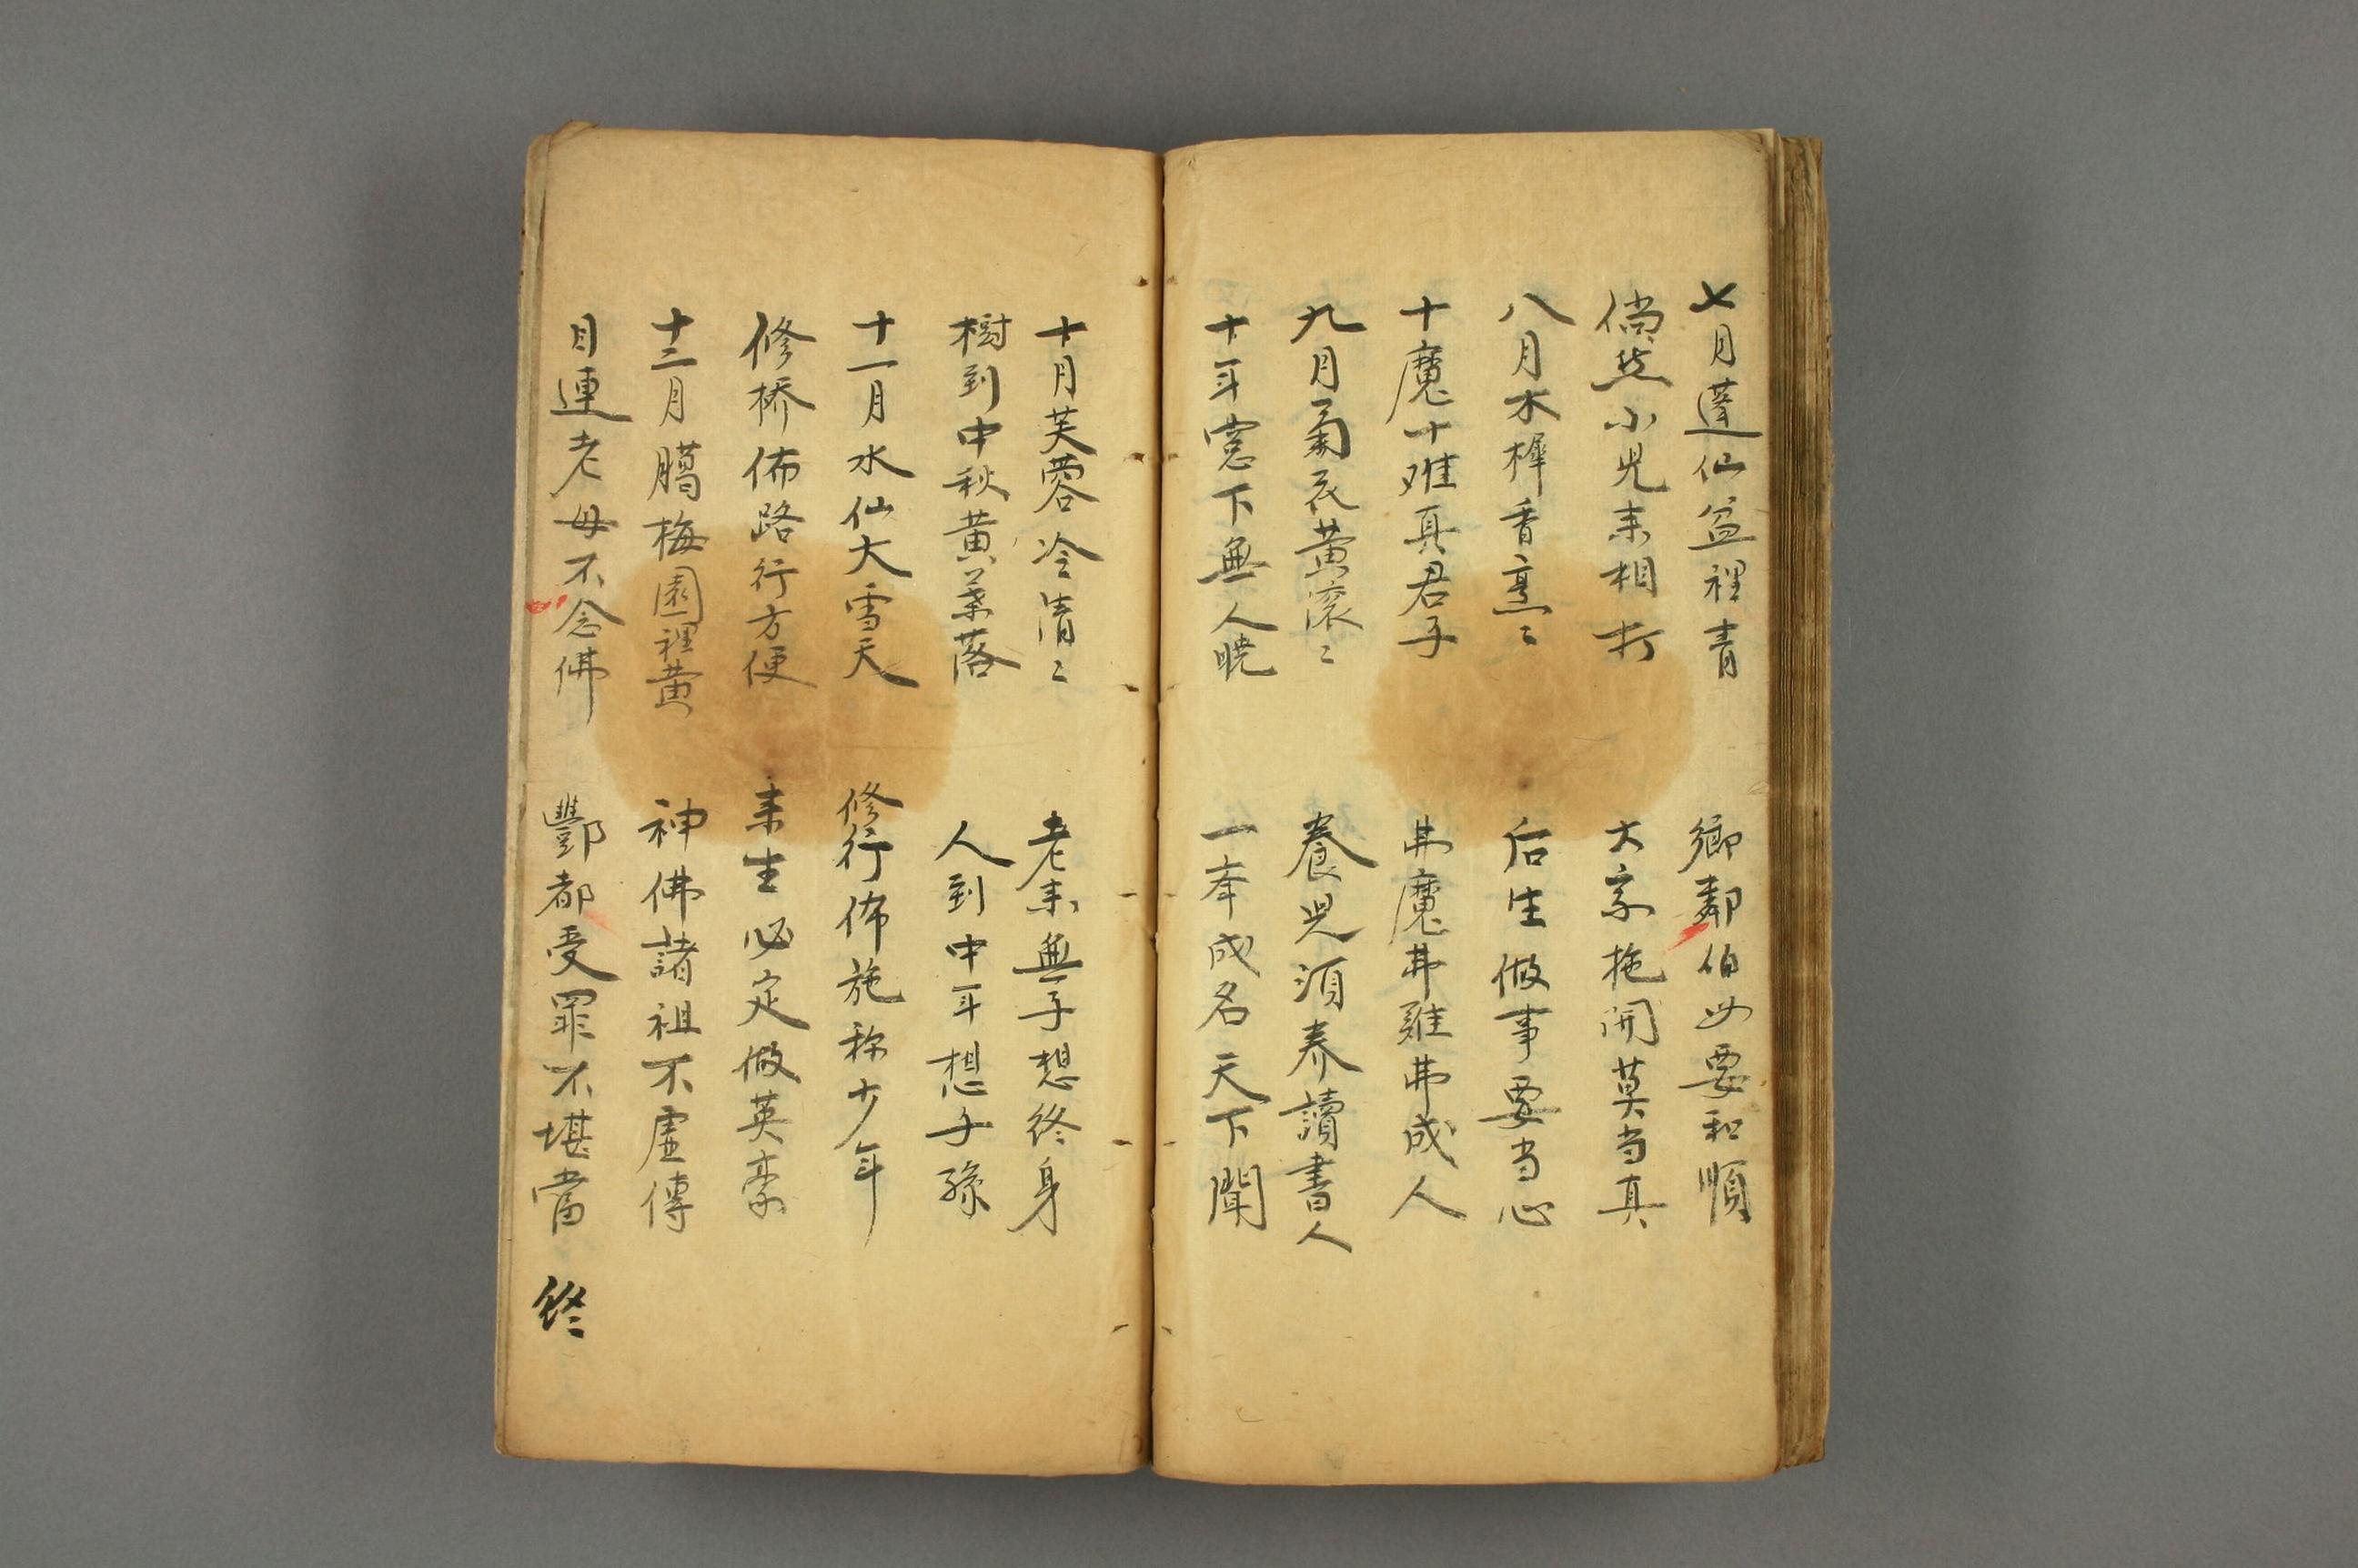 七月蓬仙盆裡青　鄉鄰伯母要和順
倘然小児来相打　大家拖開莫当真
八月木樨香熏〻　后生做事要当心
十魔十难真君子　弗魔弗難弗成人
九月菊花黄滚〻　養児須养讀書人
十年窓下無人曉　一举成名天下聞
十月芙蓉冷清〻　老来無子想终身
樹到中秋黄葉落　人到中年想子孫
十一月水仙大雪天　修行佈施称少年
修橋佈路行方便　来生必定做英豪
十二月臈梅園裡黄　神佛諸祖不虚傳
目連老母不念佛　酆都受罪不堪當　终